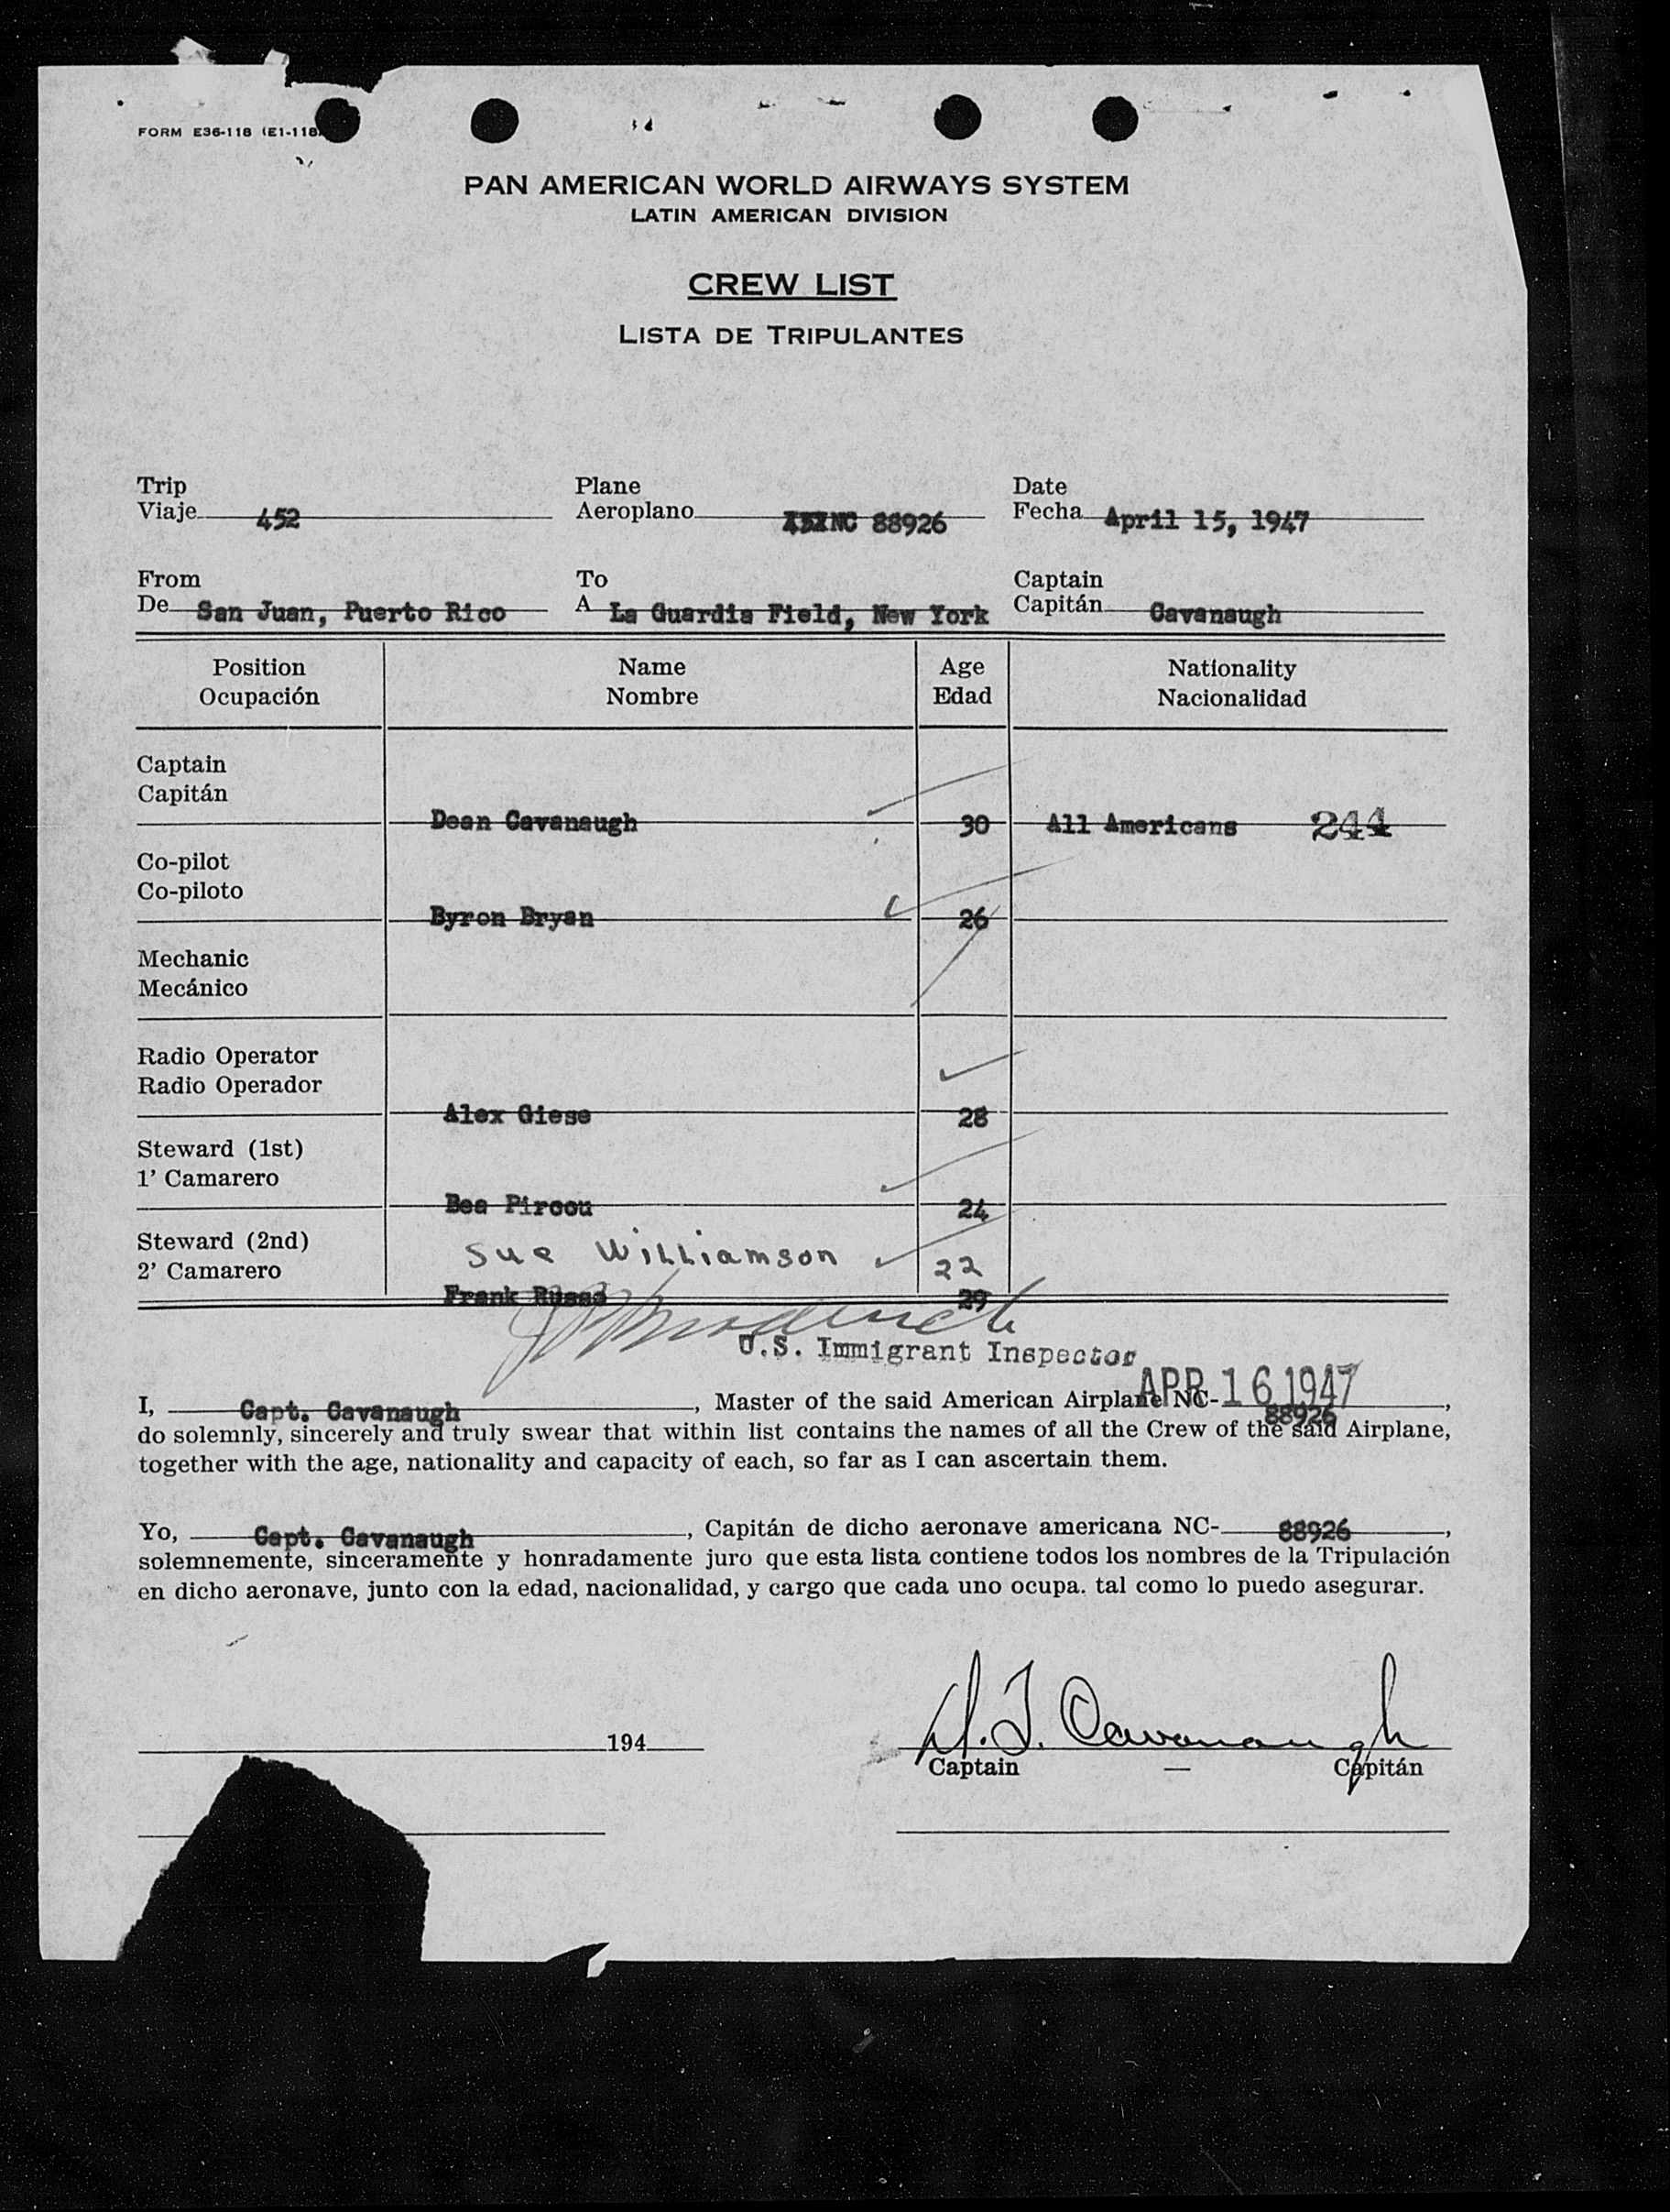 FORM E36-118 (E1-118)
PAN AMERICAN WORLD AIRWAYS SYSTEM
LATIN AMERICAN DIVISION
CREW LIST
LISTA DE TRIPULANTES
Trip Plane Date
Viaje 452 Aeroplano NC 88926 Fecha April 15, 1947
From To Captain
De San Juan, Puerto Rico A La Guardia Field, New York Capitán Cavanaugh
Position Name Age Nationality
Ocupación Nombre Edad Nacionalidad
Captain
Capitán
Dean Cavanaugh 30 All Americans 244
Co-pilot
Co-piloto
Byron Bryan 26
Mechanic
Mecánico
Radio Operator
Radio Operador
Alex Giese 28
Steward (1st)
1' Camarero
Bea Pircou 24
Steward (2nd)
2' Camarero
Sue Williamson 22
Frank Russo 29
U.S. Immigrant Inspector
APR 16 1947
I, Capt. Cavanaugh, Master of the said American Airplane NC- 88926,
do solemnly, sincerely and truly swear that within list contains the names of all the Crew of the said Airplane,
together with the age, nationality and capacity of each, so far as I can ascertain them.
Yo, Capt. Cavanaugh, Capitán de dicho aeronave americana NC- 88926,
solemnemente, sinceramente y honradamente juro que esta lista contiene todos los nombres de la Tripulación
en dicho aeronave, junto con la edad, nacionalidad, y cargo que cada uno ocupa. tal como lo puedo asegurar.
194
D. J. Cavanaugh
Captain — Capitán